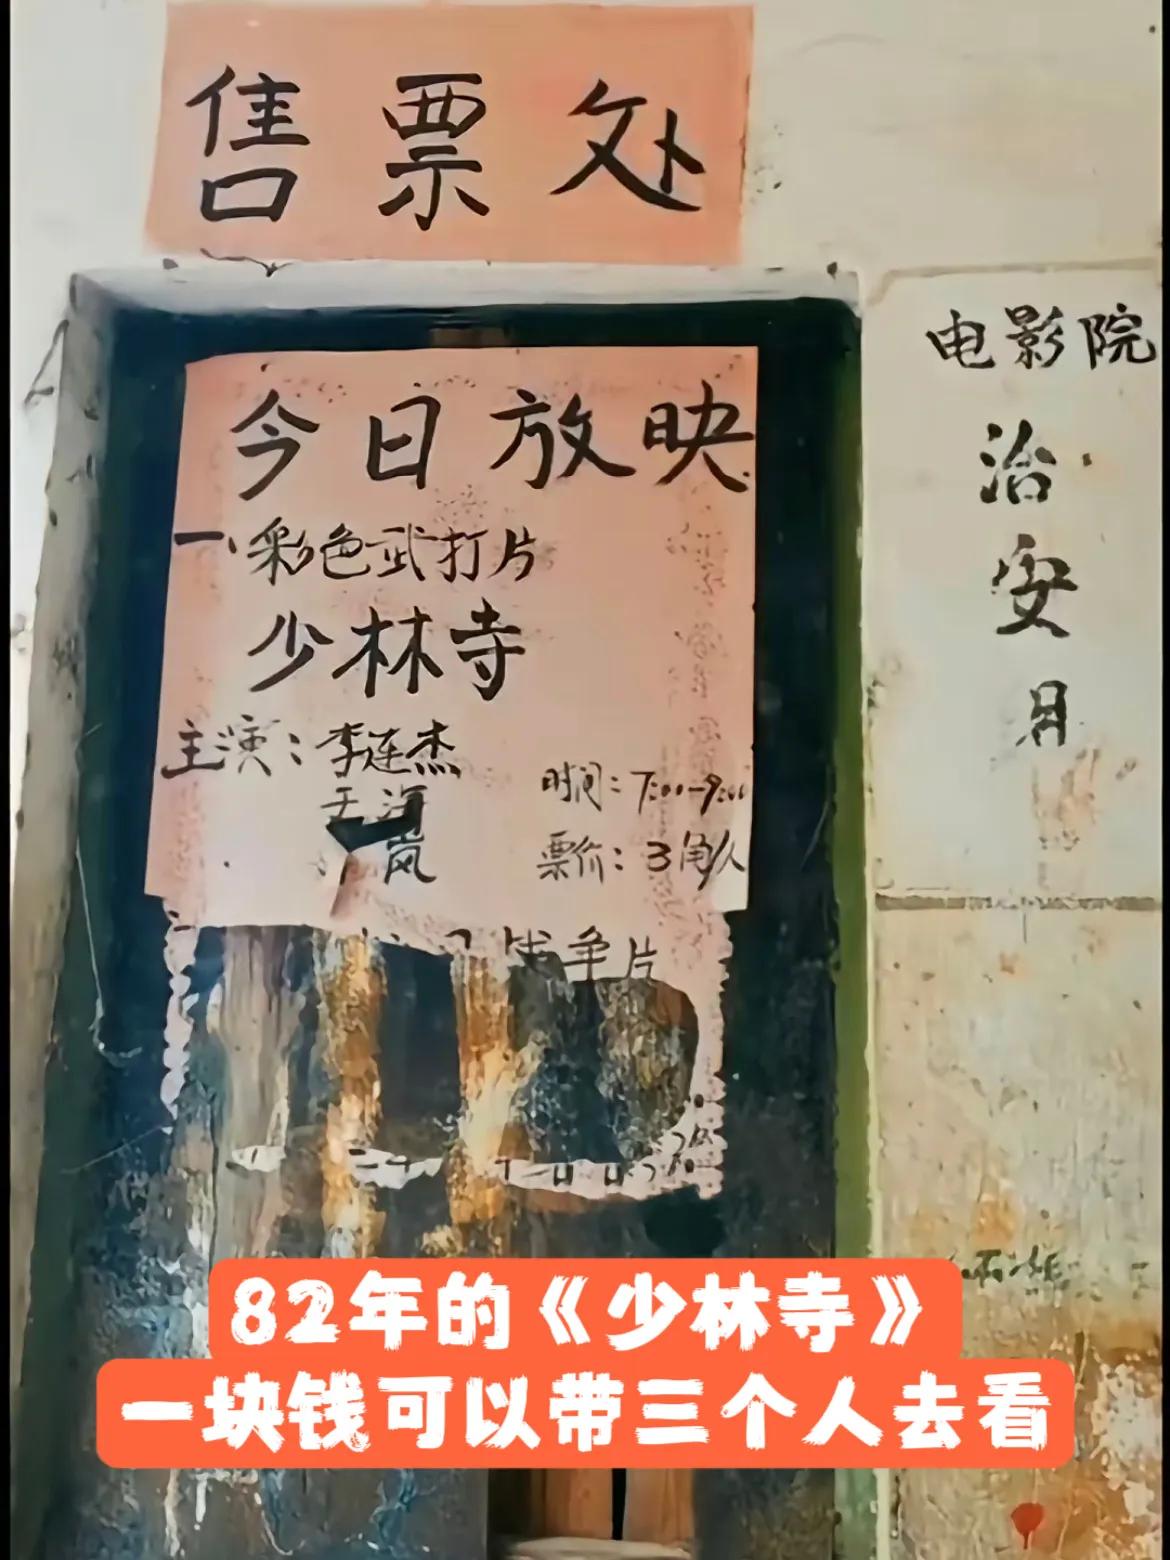 售票处
今日放映
一、彩色武打片
少林寺
主演：李连杰
于海
岚
时间：7:00-9:00
票价：3角/人
战争片
电影院
治
安
82年的《少林寺》
一块钱可以带三个人去看